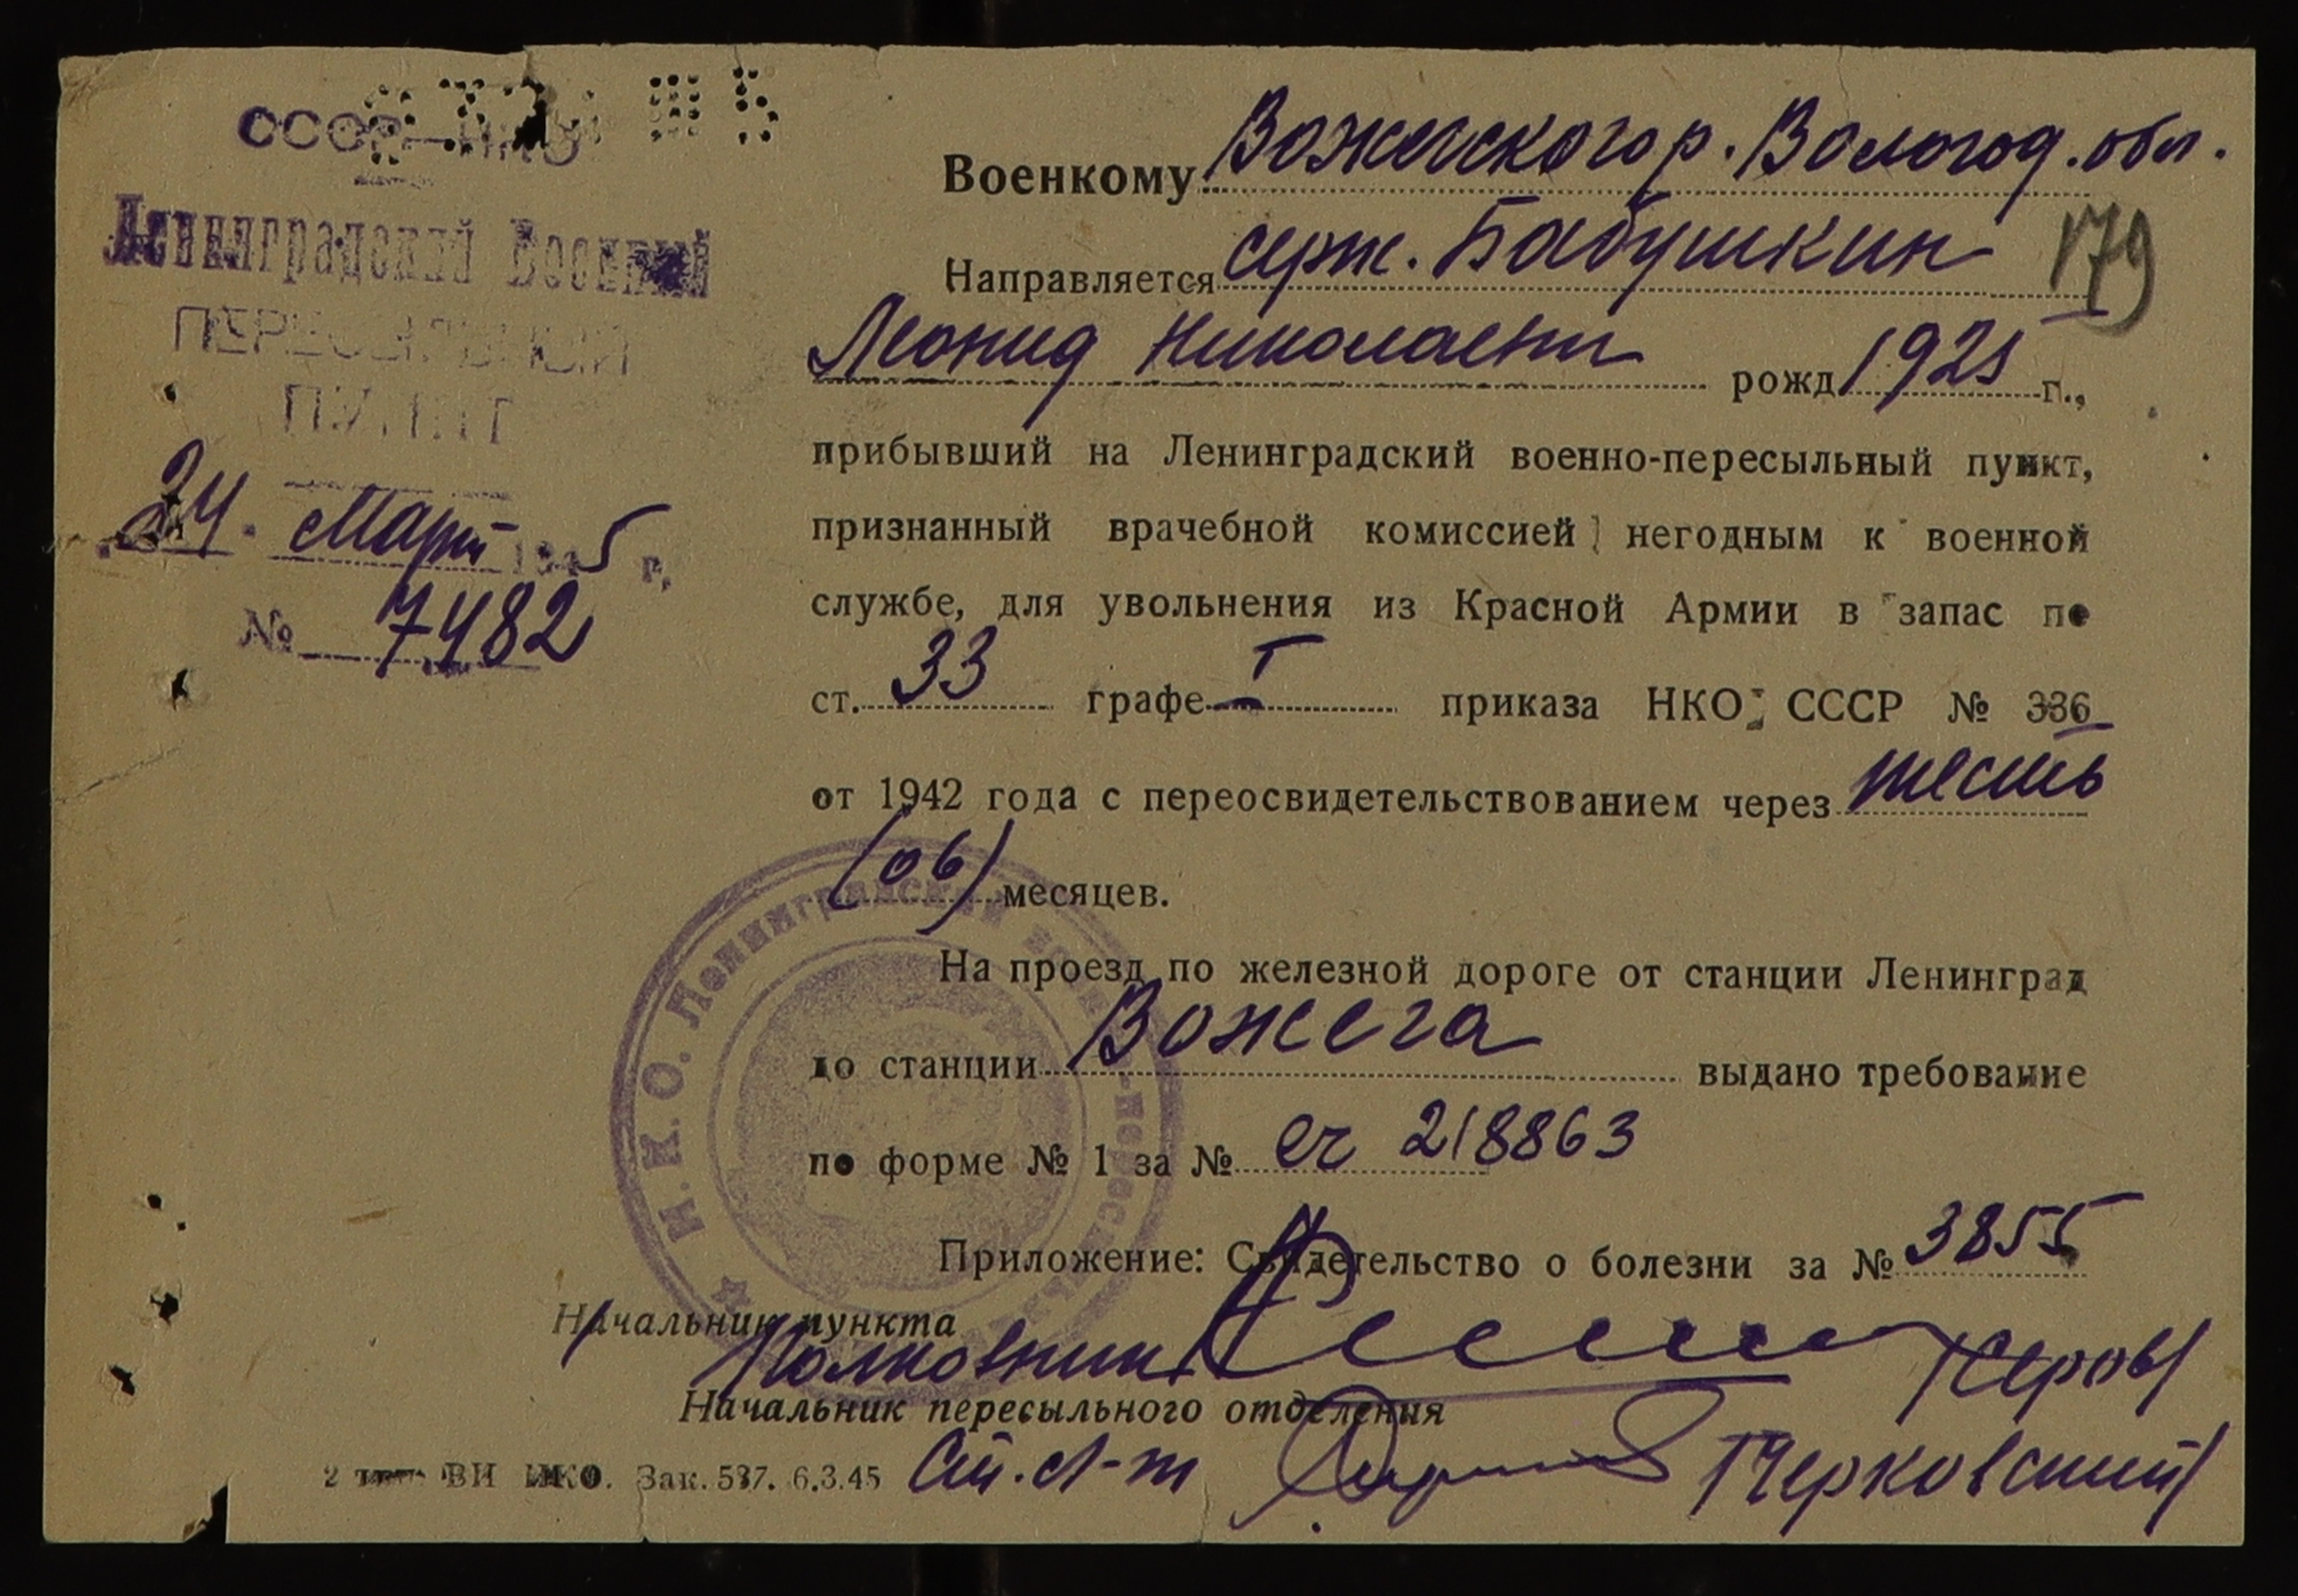 СССР—НКО
Ленинградский Военный
ПЕРЕСЫЛЬНЫЙ
ПУНКТ
24. Март 1945 г.
№ 7482
Военкому Вожегского р. Вологод. обл.
Направляется серж. Бабушкин
179
Леонид Николаевич рожд 1921 г.,
прибывший на Ленинградский военно-пересыльный пункт,
признанный врачебной комиссией негодным к военной
службе, для увольнения из Красной Армии в запас по
ст. 33 графе I приказа НКО СССР № 336
от 1942 года с переосвидетельствованием через шесть
(06) месяцев.
На проезд по железной дороге от станции Ленинград
до станции Вожега выдано требование
по форме № 1 за № 218863
Приложение: Свидетельство о болезни за № 3855
Начальник пункта
Полковник /Серов/
Начальник пересыльного отделения
Ст. Л-т /Черковский/
2 тип. ВИ НКО. Зак. 537. 6.3.45
Н.К.О. Ленинградский военно-пересыльный